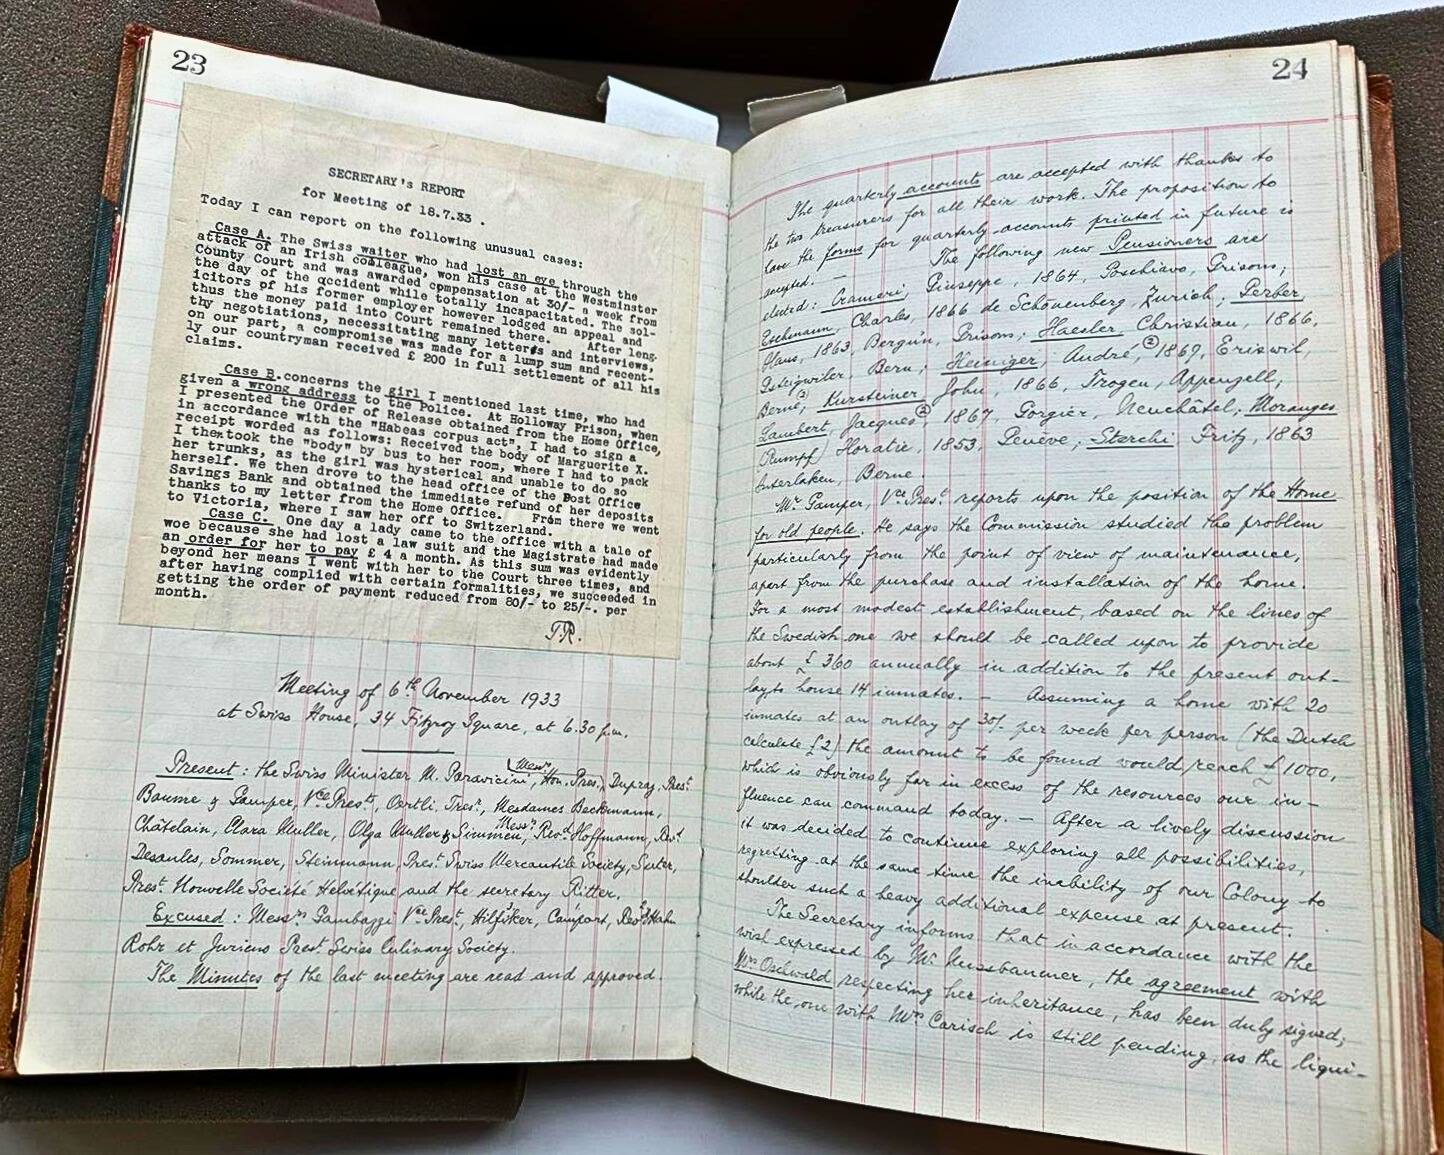 23
SECRETARY's REPORT
for Meeting of 18.7.33 .
Today I can report on the following unusual cases:
Case A. The Swiss waiter who had lost an eye through the
attack of an Irish colleague, won his case at the Westminster
County Court and was awarded compensation at 30/- a week from
the day of the qccident while totally incapacitated. The sol-
icitors of his former employer however lodged an appeal and
thus the money paid into Court remained there. After leng-
thy negotiations, necessitating many letters and interviews,
on our part, a compromise was made for a lump sum and recent-
ly our countryman received £ 200 in full settlement of all his
claims.
Case B. concerns the girl I mentioned last time, who had
given a wrong address to the Police. At Holloway Prison, when
I presented the Order of Release obtained from the Home Office,
in accordance with the "Habeas corpus act", I had to sign a
receipt worded as follows: Received the body of Marguerite X.
I then took the "body" by bus to her room, where I had to pack
her trunks, as the girl was hysterical and unable to do so
herself. We then drove to the head office of the Post Office
Savings Bank and obtained the immediate refund of her deposits
thanks to my letter from the Home Office. From there we went
to Victoria, where I saw her off to Switzerland.
Case C. One day a lady came to the office with a tale of
woe because she had lost a law suit and the Magistrate had made
an order for her to pay £ 4 a month. As this sum was evidently
beyond her means I went with her to the Court three times, and
after having complied with certain formalities, we succeeded in
getting the order of payment reduced from 80/- to 25/-. per
month.
T.R.
Meeting of 6th November 1933
at Swiss House, 34 Fitzroy Square, at 6.30 p.m.
Present : the Swiss Minister M. Paravicini, Hon. Pres., Messrs Dupraz, Prest.
Baume & Gamper, Vce Prests, Oertli, Tresr, Mesdames Beckmann,
Châtelain, Clara Muller, Olga Muller & Simmen, Messrs Revd Hoffmann, Revd
Desaules, Sommer, Steinmann, Prest. Swiss Mercantile Society, Suter,
Prest. Nouvelle Société Helvétique and the secretary Ritter.
Excused : Messrs Gambazzi Vce Prest, Hilfiker, Campart, Revd Hahn
Rohr et Juriens Prest. Swiss Culinary Society.
The Minutes of the last meeting are read and approved.
24
The quarterly accounts are accepted with thanks to
the two treasurers for all their work. The proposition to
have the forms for quarterly accounts printed in future is
accepted. — The following new Pensioners are
elected : Crameri, Giuseppe, 1864, Poschiavo, Grisons;
Eschmann, Charles, 1866 de Schönenberg, Zurich ; Gerber
Hans, 1863, Bergün, Grisons; Haesler Christian, 1866,
Gsteigwiler, Bern ; Heiniger, André, (2) 1869, Eriswil,
Berne (2) ; Kursteiner John, 1866, Trogen, Appenzell;
Lambert, Jacques (2) 1867, Gorgier, Neuchâtel; Moranges
(Rumpf) Horatie, 1853, Genève ; Sterchi Fritz, 1863
Interlaken, Berne.
Mr Gamper, Vce Prest reports upon the position of the Home
for old people. He says the Commission studied the problem
particularly from the point of view of maintenance,
apart from the purchase and installation of the home.
For a most modest establishment, based on the lines of
the Swedish one we should be called upon to provide
about £ 360 annually in addition to the present out-
lay to house 14 inmates. — Assuming a home with 20
inmates at an outlay of 30/. per week per person (the Dutch
calculate £2) the amount to be found would reach £ 1000,
which is obviously far in excess of the resources our in-
fluence can command today. — After a lively discussion
it was decided to continue exploring all possibilities,
regretting at the same time the inability of our Colony to
shoulder such a heavy additional expense at present.
The Secretary informs that in accordance with the
wish expressed by Mr Nussbaumer, the agreement with
Mrs Oschwald respecting her inheritance, has been duly signed;
while the one with Mrs Carisch is still pending, as the liqui-